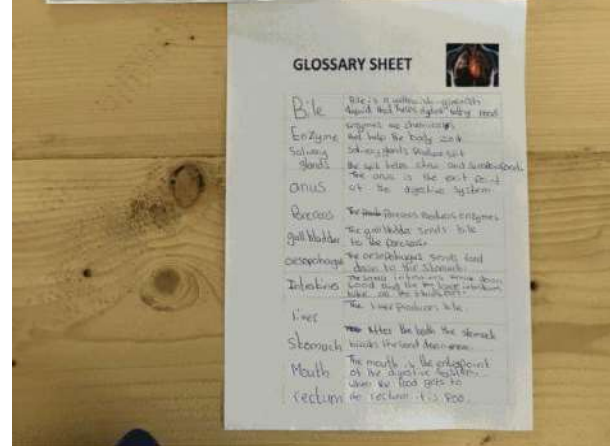 GLOSSARY SHEET
Bile
Bile is a yellow ish greenish
liquid that helps digest fatty food
Enzyme
enzymes are chemicals
that help the body work
Salivary
glands
Salivary glands produce spit
the spit helps chew and food
anus
The anus is the exit point
of the digestive system
Pancreas
The Pancreas Produces enzymes
gall bladder
The gall bladder sends bile
to the Pancreas.
The oesophagus sends food
down to the stomach.
Intestines
The small intestines break down
food and the large intestine
liver
The liver produces bile
Stomach
After the the stomach
breaks the food down
Mouth
The mouth is the entrypoint
of the digestive system.
rectum
When the food gets to
the rectum it is Poo.